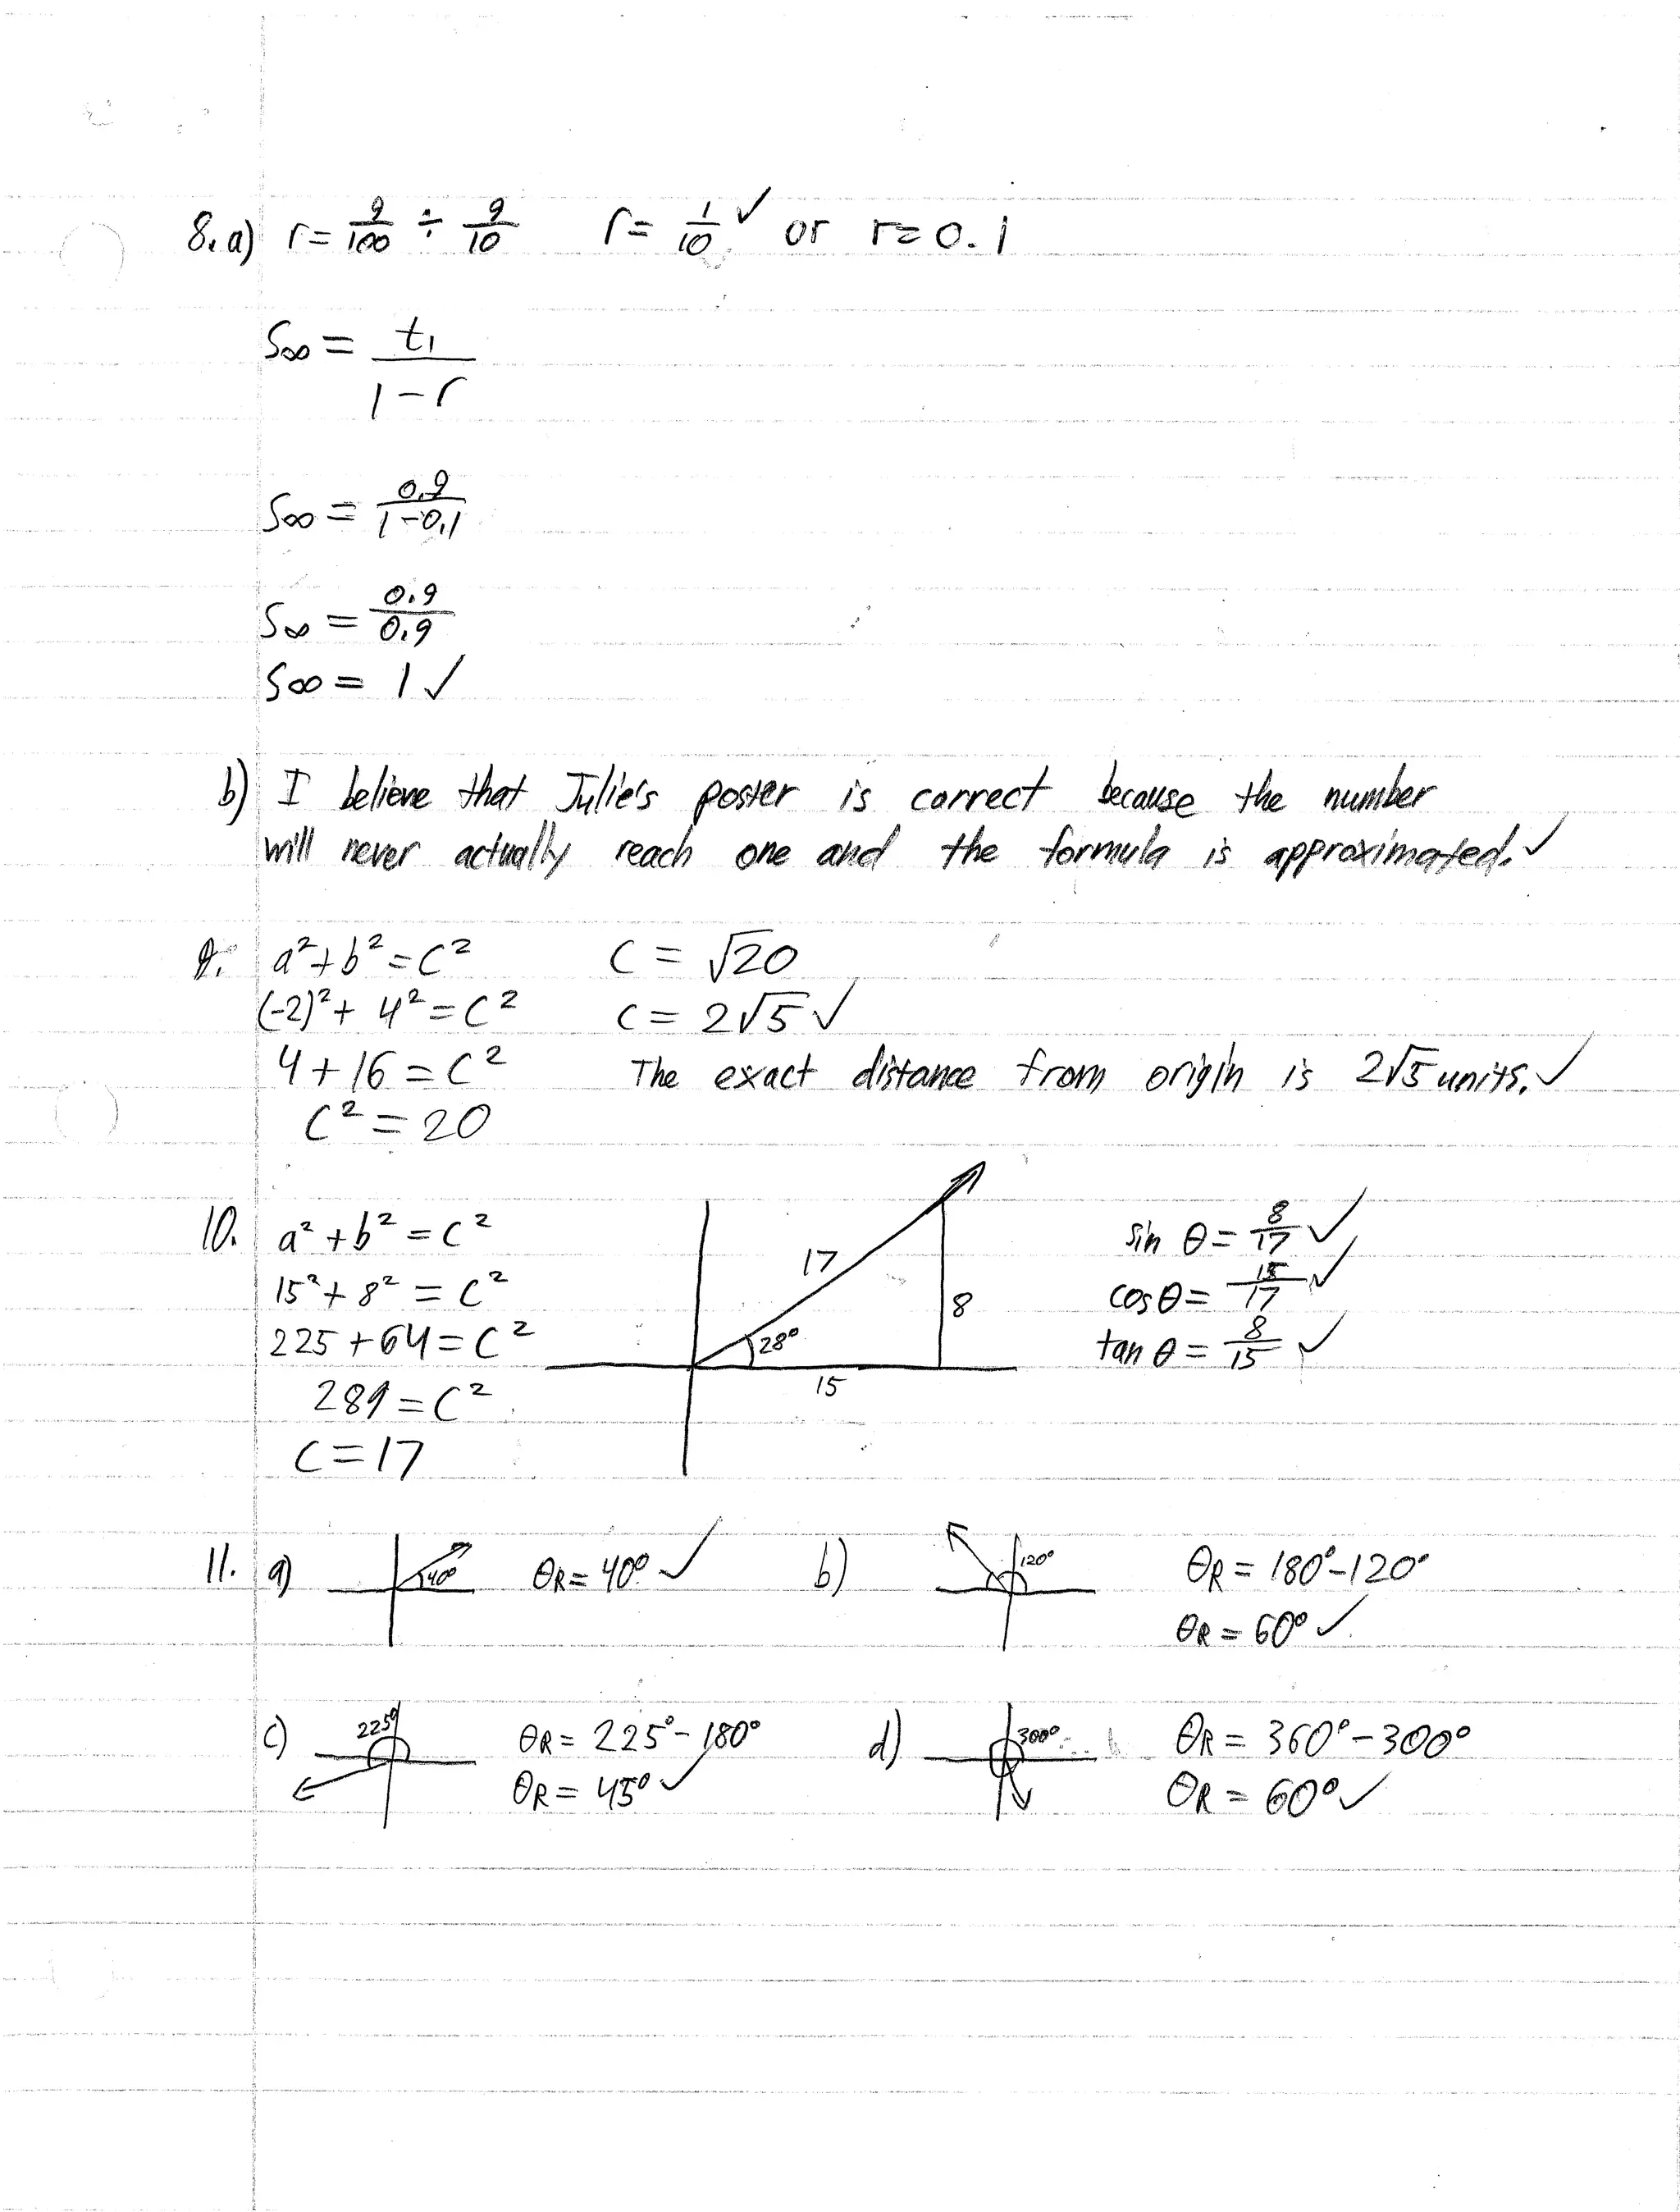 8. a) r = 9/100 ÷ 9/10 r = 1/10 ✓ or r = 0.1
S∞ = t₁/(1-r)
S∞ = 0.9/(1-0.1)
S∞ = 0.9/0.9
S∞ = 1 ✓
b) I believe that Julie's poster is correct because the number
will never actually reach one and the formula is approximated. ✓
9. a² + b² = c² c = √20
(-2)² + 4² = c² c = 2√5 ✓
4 + 16 = c² The exact distance from origin is 2√5 units. ✓
c² = 20
10. a² + b² = c² 17 8 28° 15 sin θ = 8/17 ✓
15² + 8² = c² cos θ = 15/17 ✓
225 + 64 = c² tan θ = 8/15 ✓
289 = c²
c = 17
11. a) 40° θR = 40° ✓ b) 120° θR = 180° - 120°
θR = 60° ✓
c) 225° θR = 225° - 180° d) 300° θR = 360° - 300°
θR = 45° ✓ θR = 60° ✓